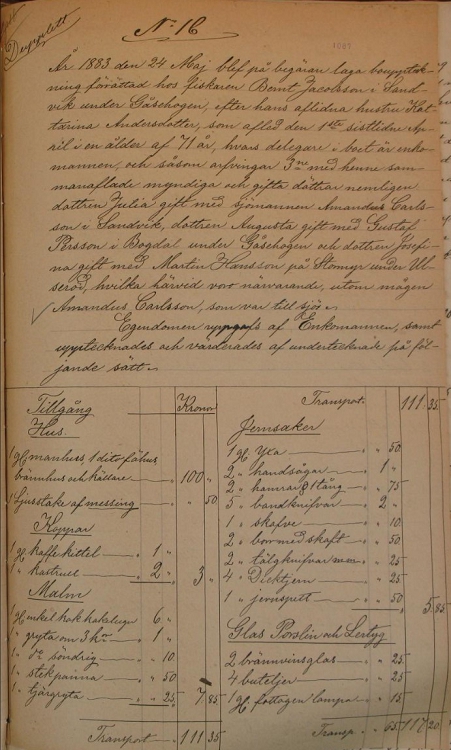 Dupplett
N. 16
År 1883 den 24 Maj blef på begäran laga bouppteck-
ning förättad hos fiskaren Bernt Jacobsson i Sand-
vik under Gåsehogen, efter hans aflidna hustru Kat-
tarina Andersdotter, som afled den 1sta sistlidne Ap-
ril i en ålder af 71 år, hvars delegare i boet är enke-
mannen, och såsom arfvingar 3ne med henne sam-
manaflade myndiga och gifta döttrar nemligen
dottren Julia gift med sjömannen Amandus Carls-
son i Sandvik, dottren Augusta gift med Gustaf
Persson i Bogdal under Gåsehogen och dottren Josefi-
na gift med Martin Hansson på Stomyr under Ul-
seröd, hvilka härvid vor närvarande, utom mågen
Amandus Carlsson, som var till sjös.
Egendomen uppgafs af Enkomannen, samt
upptecknades och värderades af undertecknade på föl-
jande sätt.
Tillgång Kronor
Hus.
1 st manhus, 1 dito fähus
brännhus och källare 100 "
1 Ljusstake af messing " 50
Koppar
1 st kaffekittel " 1 "
1 " kastrull " 2 " 3 "
Malm
1 st enkel hak kakelugn 6 "
1 " gryta om 3 kr " 1 "
1 " do söndrig " " 10
1 " stekpanna " " 50
1 " tjärgryta " " 25 7 85
Transport 111 35
Transport 111 35
Jernsaker
1 st Yxa " " 50
2 " handsågar " 1 "
2 " hamrar & 1 tång " " 75
5 " bandknifvar " 2 "
1 " skafve " " 10
2 " borr med skaft " " 50
2 " tälgknifvar " " 25
4 " Dicktjern " " 25
1 " jernspett " " 50 5 85
Glas Porslin och Lertyg
2 brännvinsglas " " 25
4 buteljer " " 25
1 st fotogen lampa " " 15
Transp " 65 117 20